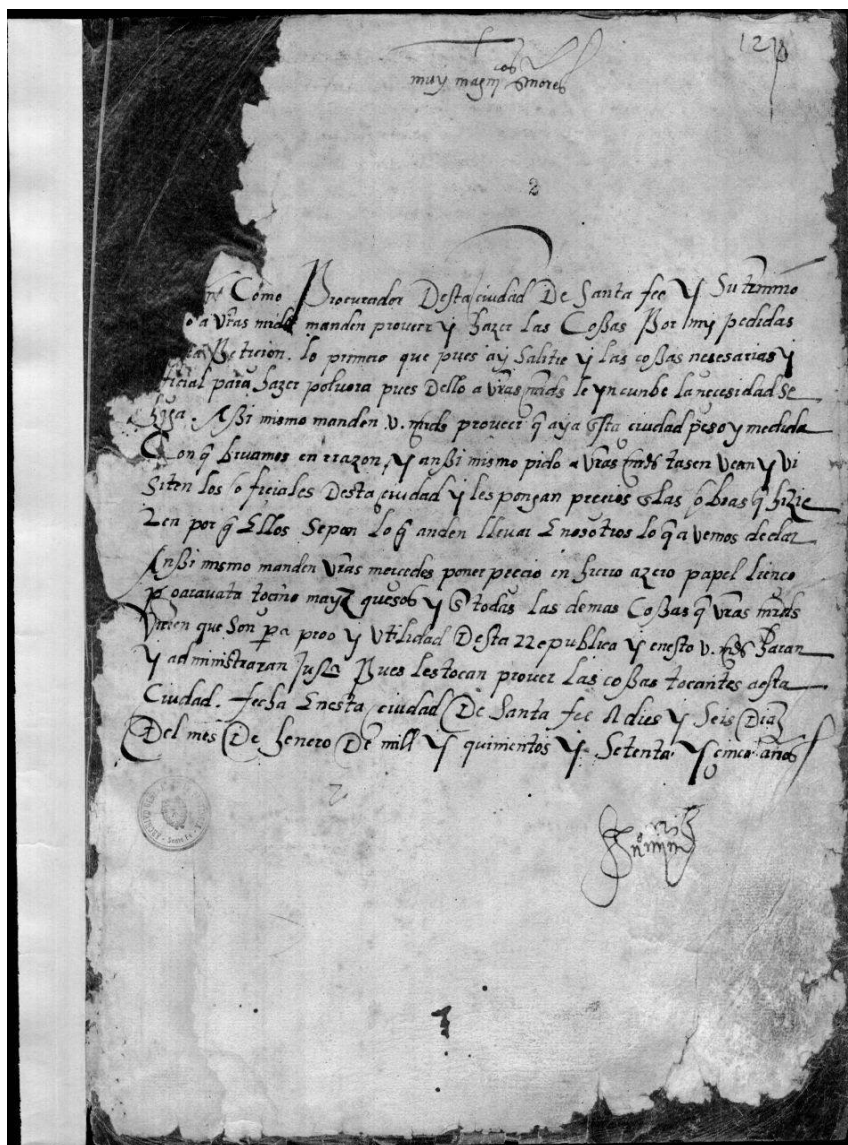 12
muy magcos Señores
2
Como Procurador Desta ciudad De Santa fee y Su termino
a vras mrds manden proveer y hazer las Cossas Por my pedidas
Peticion. lo primero que pues ay salitre y las cossas nesesarias y
oficial para hazer polvora pues Dello a vras mrds le yncunbe la nesesidad Se
haga. Assi mismo manden v. mrds proveer q aya esta ciudad peso y medida
Con q bivamos en rrazon, y anssi mismo pido a vras mrds tasen vean y vi
Siten los oficiales Desta ciudad y les pongan precios las obras q hizie
Ren por q Ellos Sepan lo q anden llevar E nosotros lo q avemos de dar
Anssi mismo manden vras mercedes poner precio en hierro azero papel lienço
garavata tocino mayz quesos y todas las demas Cossas q vras mrds
Vieren que Son pa pro y Utilidad Desta Republica y en esto v. mrds Haran
y administraran Justa Pues les tocan prover las cossas tocantes a esta
Ciudad. fecha En esta ciudad De Santa fee A dies y Seis Dias
Del mes De henero De mill y quinientos y Setenta y cinco años